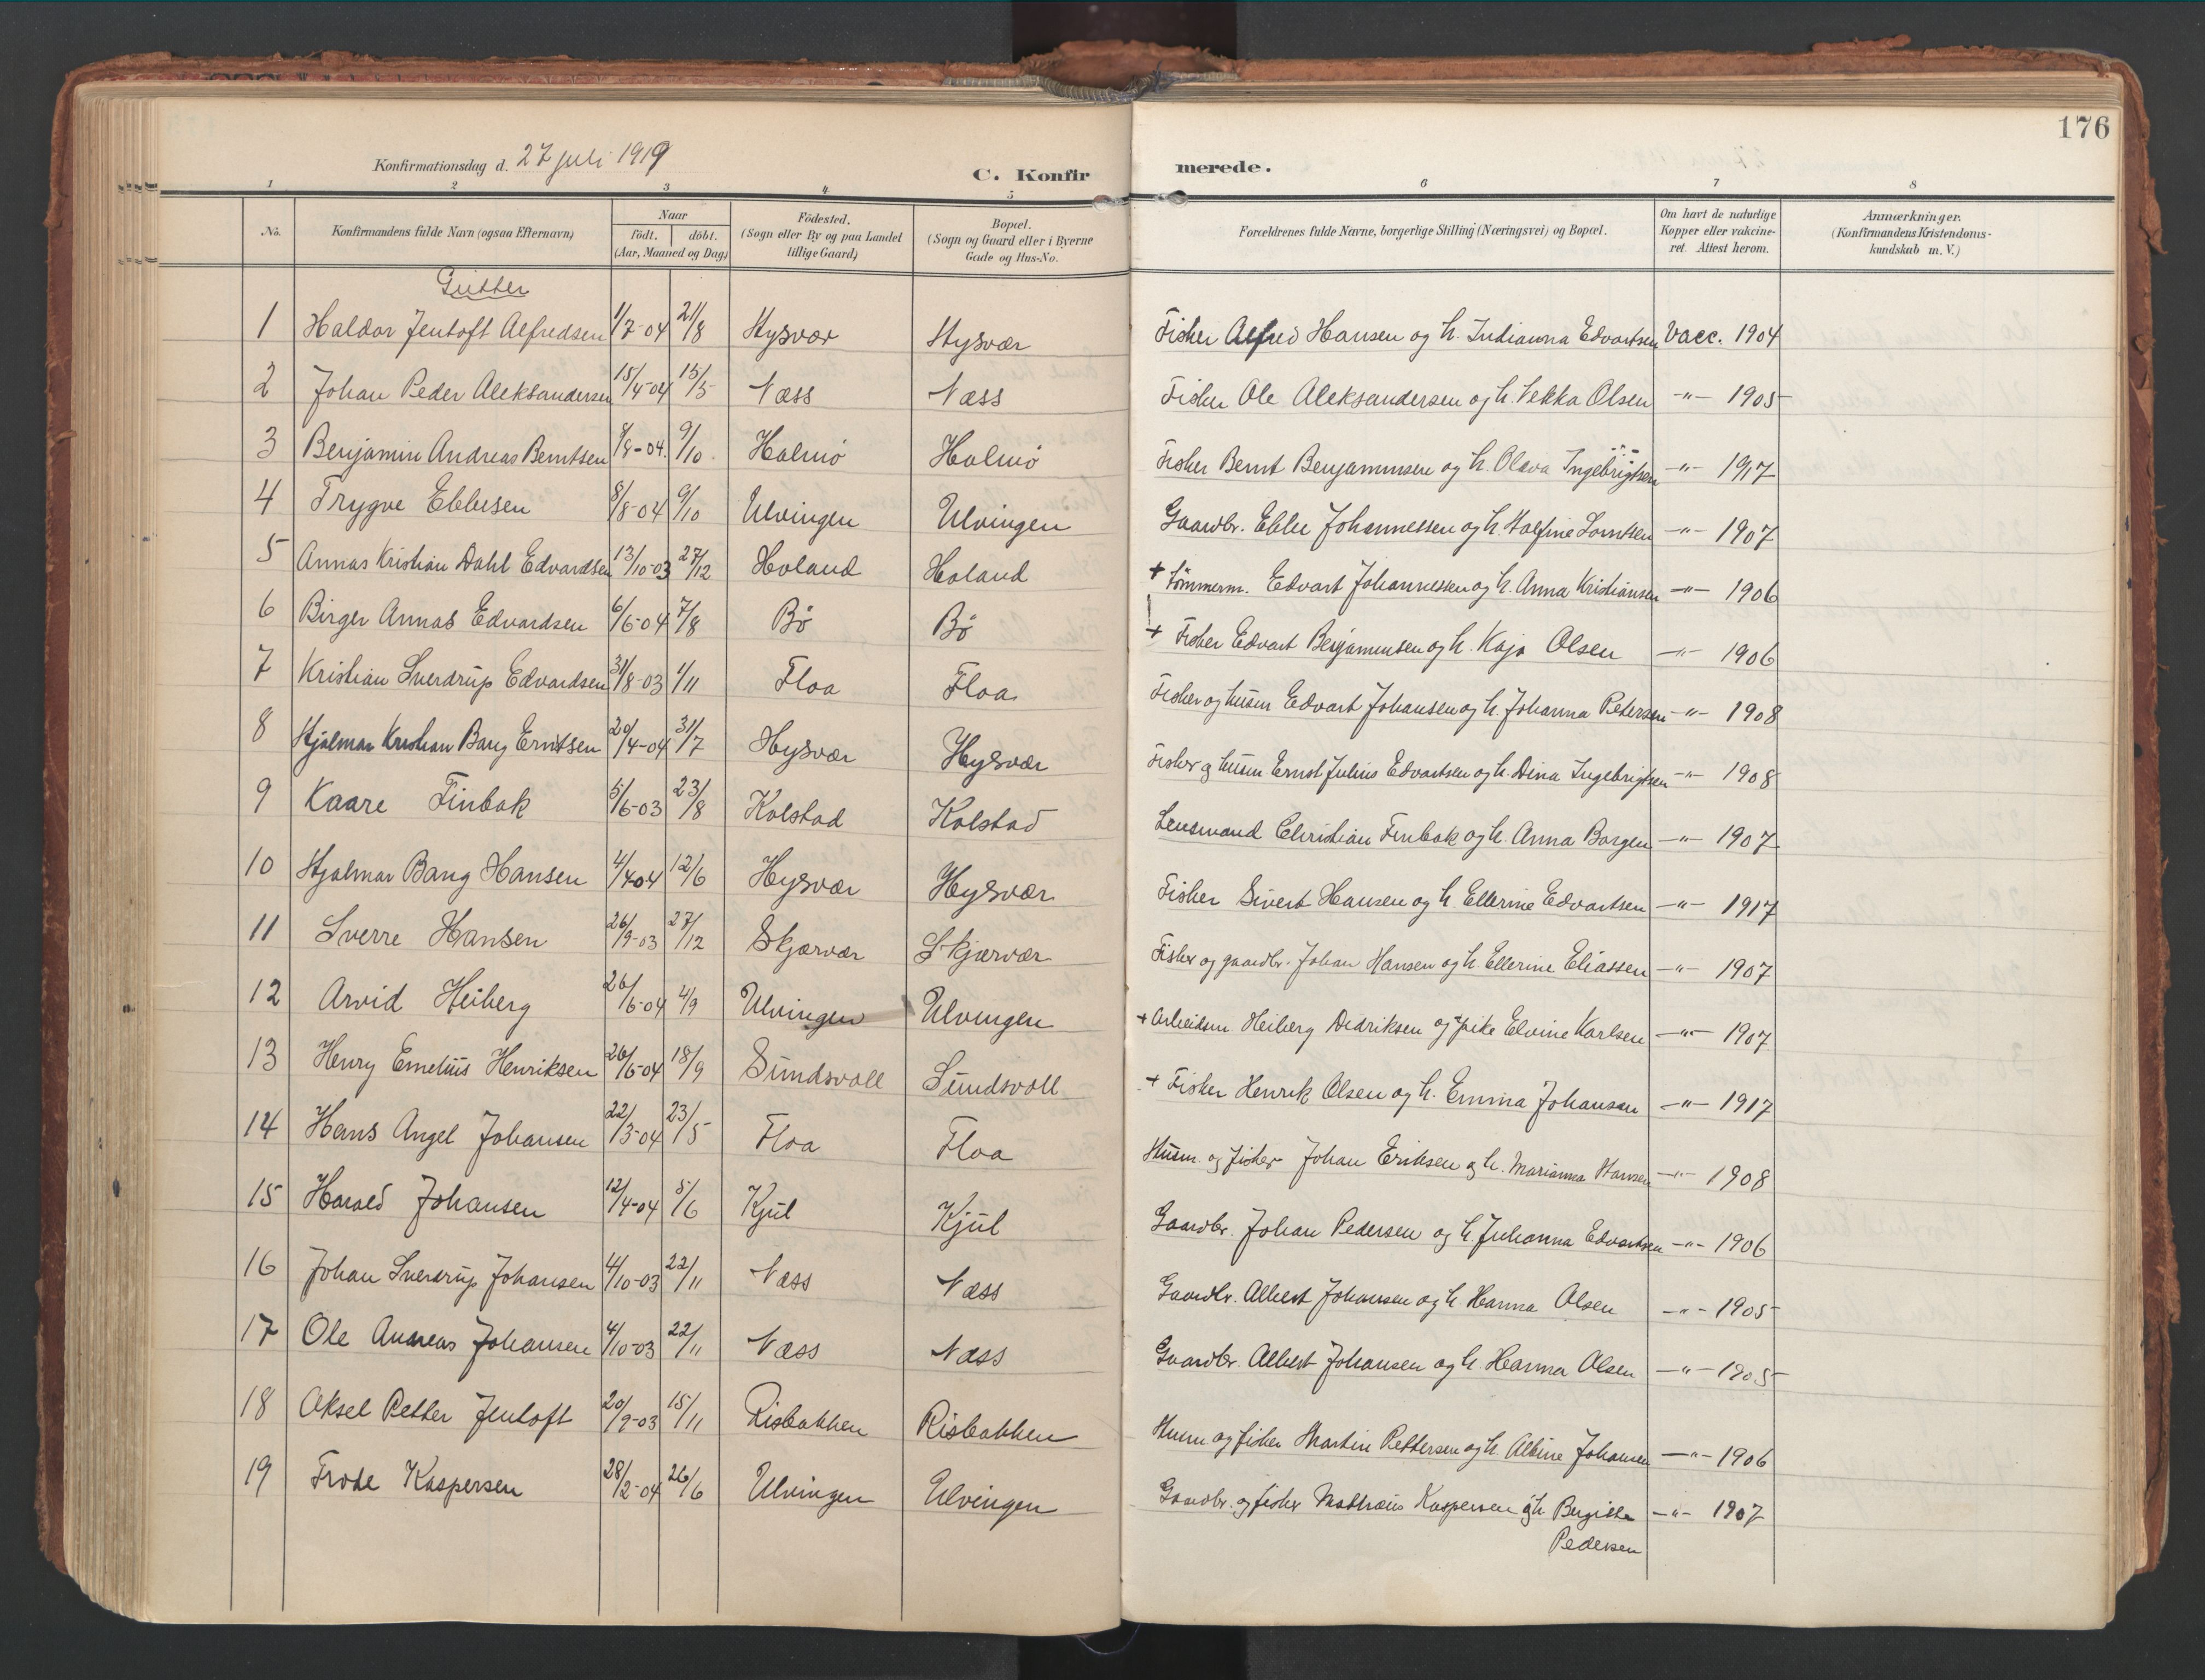 176
Konfirmationsdag d. 27 juli 1919
C. Konfirmerede.
1 2 3 4 5 6 7 8
No. | Konfirmandens fulde Navn (ogsaa Efternavn) | Naar født. døbt. (Aar, Maaned og Dag) | Fødested. (Sogn eller By og paa Landet tillige Gaard) | Bopæl. (Sogn og Gaard eller i Byerne Gade og Hus-No. | Forældrenes fulde Navne, borgerlige Stilling (Næringsvei) og Bopæl. | Om havt de naturlige Kopper eller vakcineret. Attest herom. | Anmærkninger. (Konfirmandens Kristendomskundskab m. V.)
Gutter
1 Haldor Jentoft Alfredsen 1/7-04 21/8 Hysvær Hysvær Fisker Alfred Hansen og h. Indianna Edvartsen Vacc. 1904
2 Johan Peder Aleksandersen 15/4-04 15/5 Næss Næss Fisker Ole Aleksandersen og h. Vekka Olsen -"- 1905
3 Benjamin Andreas Berntsen 8/8-04. 9/10 Holmø Holmø Fisker Bernt Benjaminsen og h. Olava Ingebrigtsen -"- 1917
4 Trygve Ebbesen 8/8-04 9/10 Ulvingen Ulvingen Gaardbr. Ebbe Johannessen og h. Halfine Lorntsen -"- 1907
5 Annas Kristian Dahl Edvardsen 13/10-03 27/12 Holand Holand + Tømmerm. Edvart Johannessen og h. Anna Kristiansen -"- 1906
6 Birger Annas Edvardsen 6/6-04 7/8 Bø Bø + Fisker Edvart Benjaminsen og h. Kaja Olsen -"- 1906
7 Kristian Sverdrup Edvardsen 31/8-03 1/11 Floa Floa Fisker og husm Edvart Johansen og h. Johanna Petersen -"- 1908
8 Hjalmar Kristian Bang Erntsen 20/4-04 31/7 Hysvær Hysvær Fisker og husm Ernst Julius Edvartsen og h. Dina Ingebrigtsen -"- 1908
9 Kaare Finbak 5/6-03 23/8 Kolstad Kolstad Lensmand Christian Finbak og h. Anna Borgen -"- 1907
10 Hjalmar Bang Hansen 4/4 04 12/6 Hysvær Hysvær Fisker Sivert Hansen og h. Ellerine Edvartsen -"- 1917
11 Sverre Hansen 26/9-03 27/12 Skjærvær Skjærvær Fisker og gaardbr. Johan Hansen og h. Ellerine Eliassen -"- 1907
12 Arvid Heiberg 26/6-04 4/9 Ulvingen Ulvingen + Arbeidsm Heiberg Didriksen og pike Elvine Karlsen -"- 1907
13 Henry Emelius Henriksen 26/6-04 18/9 Sundsvoll Sundsvoll + Fisker Henrik Olsen og h. Emma Johansen -"- 1917
14 Hans Angel Johansen 22/3-04 23/5 Floa Floa Husm. og fisker Johan Eriksen og h. Marianna Hansen -"- 1908
15 Harald Johansen 12/4-04 5/6 Kjul Kjul Gaardbr. Johan Pedersen og h. Juhanna Edvartsen -"- 1906
16 Johan Sverdrup Johansen 4/10-03 22/11 Næss Næss Gaardbr. Albert Johansen og h. Hanna Olsen -"- 1905
17 Ole Andreas Johansen 4/10-03 22/11 Næss Næss Gaardbr. Albert Johansen og h. Hanna Olsen -"- 1905
18 Aksel Petter Jentoft 20/9-03 15/11 Risbakken Risbakken Husm og fisker Martin Pettersen og h. Albine Johansen -"- 1906
19 Frode Kaspersen 28/2-04 26/6 Ulvingen Ulvingen Gaardbr. og fisker Mathæus Kaspersen og h. Bergitte -"- 1907
Pedersen